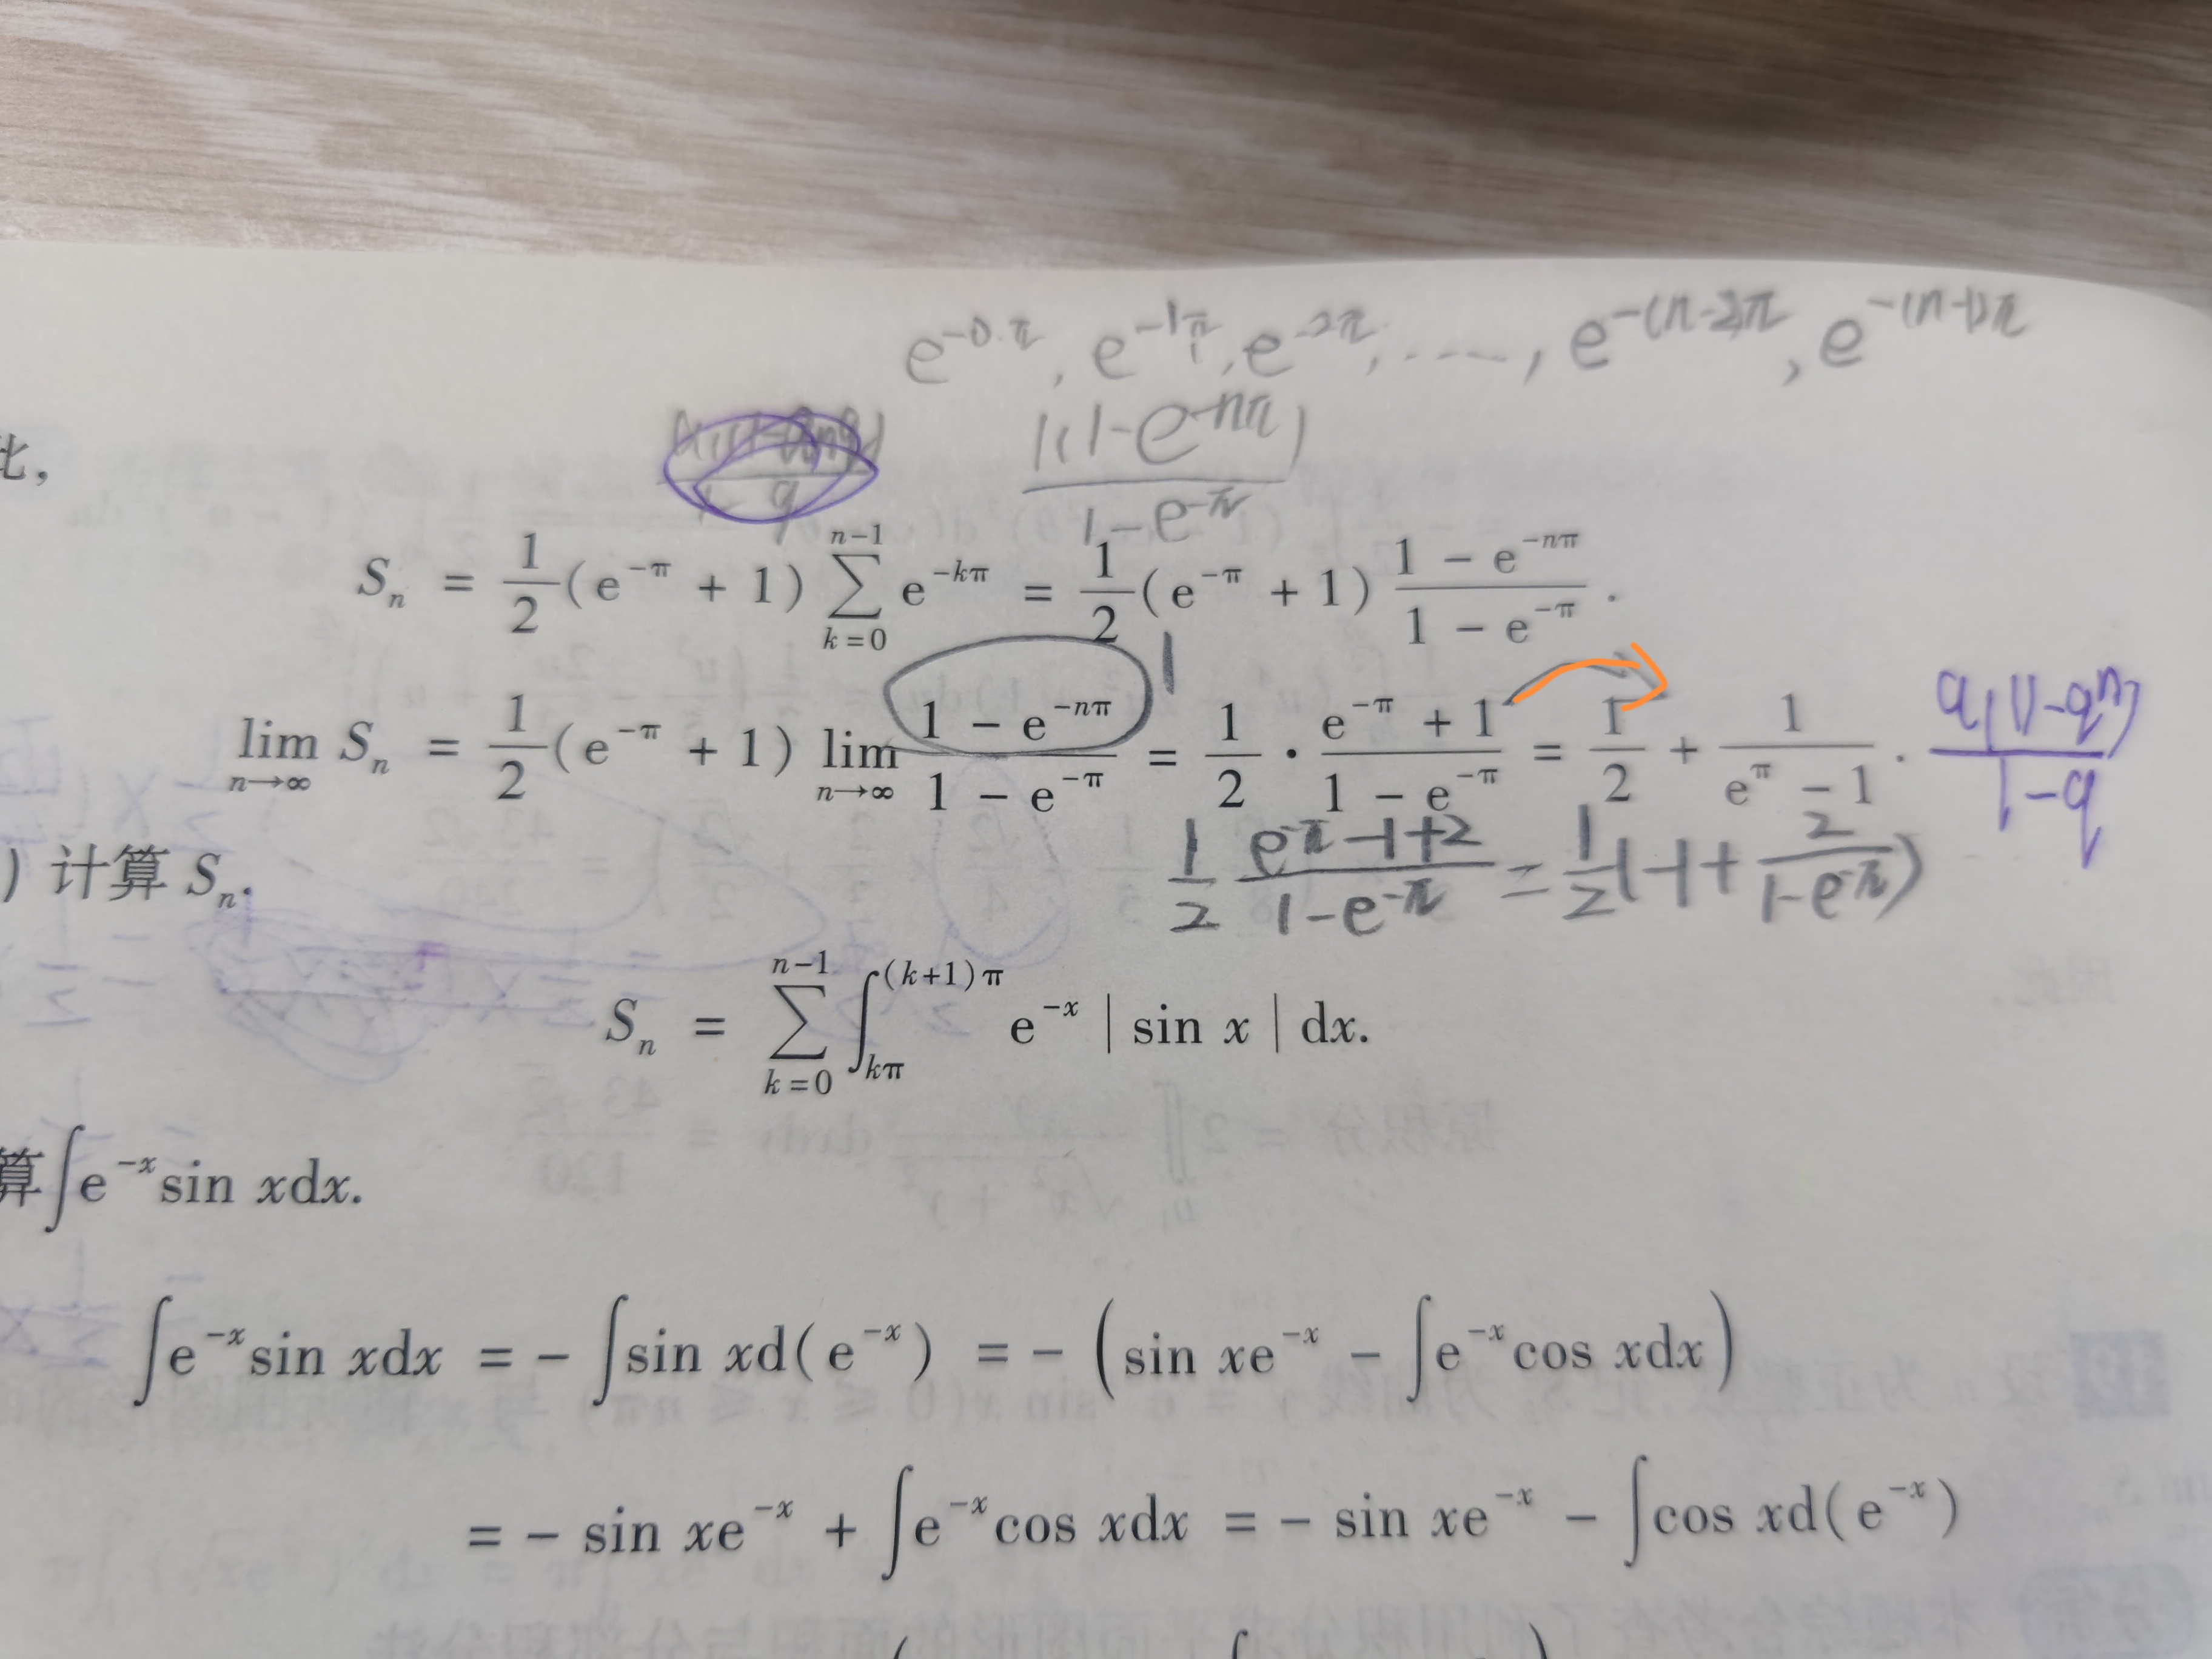 e^{-0·π}, e^{-1π}, e^{-2π}, ……, e^{-(n-2)π}, e^{-(n-1)π}
\frac{1(1-e^{-nπ})}{1-e^{-π}}
此,
S_n = \frac{1}{2}(e^{-π} + 1) \sum_{k=0}^{n-1} e^{-kπ} = \frac{1}{2}(e^{-π} + 1) \frac{1 - e^{-nπ}}{1 - e^{-π}}.
1
\lim_{n→∞} S_n = \frac{1}{2}(e^{-π} + 1) \lim_{n→∞} \frac{1 - e^{-nπ}}{1 - e^{-π}} = \frac{1}{2} · \frac{e^{-π} + 1}{1 - e^{-π}} = \frac{1}{2} + \frac{1}{e^{π} - 1}. \frac{a_1(1-q^n)}{1-q}
\frac{1}{2} \frac{e^{-π}-1+2}{1-e^{-π}} = \frac{1}{2}(-1+\frac{2}{1-e^{-π}})
) 计算 S_n.
S_n = \sum_{k=0}^{n-1} ∫_{kπ}^{(k+1)π} e^{-x} | sin x | dx.
算∫e^{-x}sin xdx.
∫e^{-x}sin xdx = - ∫sin xd(e^{-x}) = - (sin xe^{-x} - ∫e^{-x}cos xdx)
= - sin xe^{-x} + ∫e^{-x}cos xdx = - sin xe^{-x} - ∫cos xd(e^{-x})